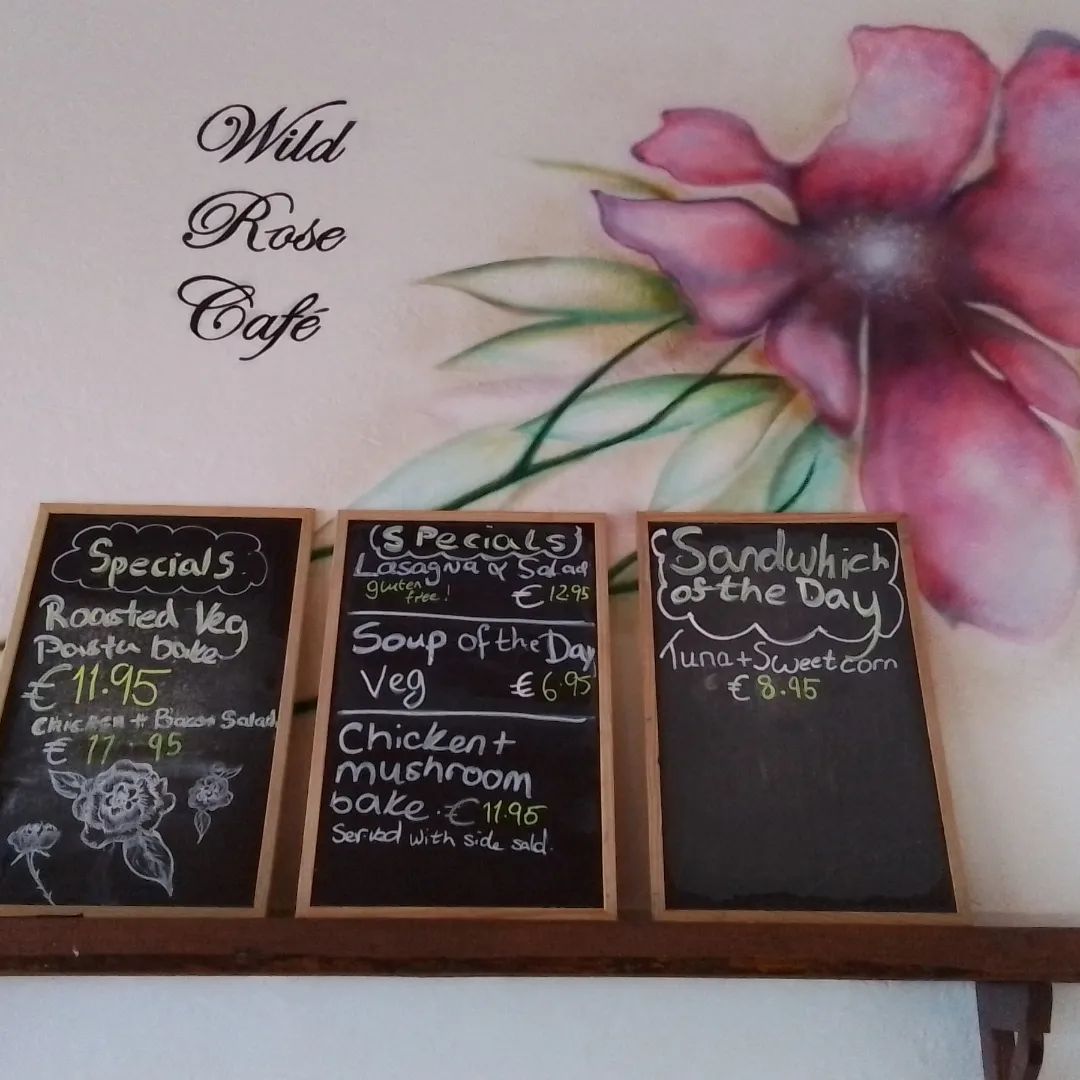 Wild
Rose
Café
Specials
Roasted Veg
Pasta bake
€11.95
Chicken + Bacon Salad
€ 11.95
(Specials)
Lasagna & Salad
gluten free! €12.95
Soup of the Day
Veg €6.95
Chicken +
mushroom
bake. €11.95
Served with side sald.
Sandwhich
of the Day
Tuna + Sweetcorn
€8.95